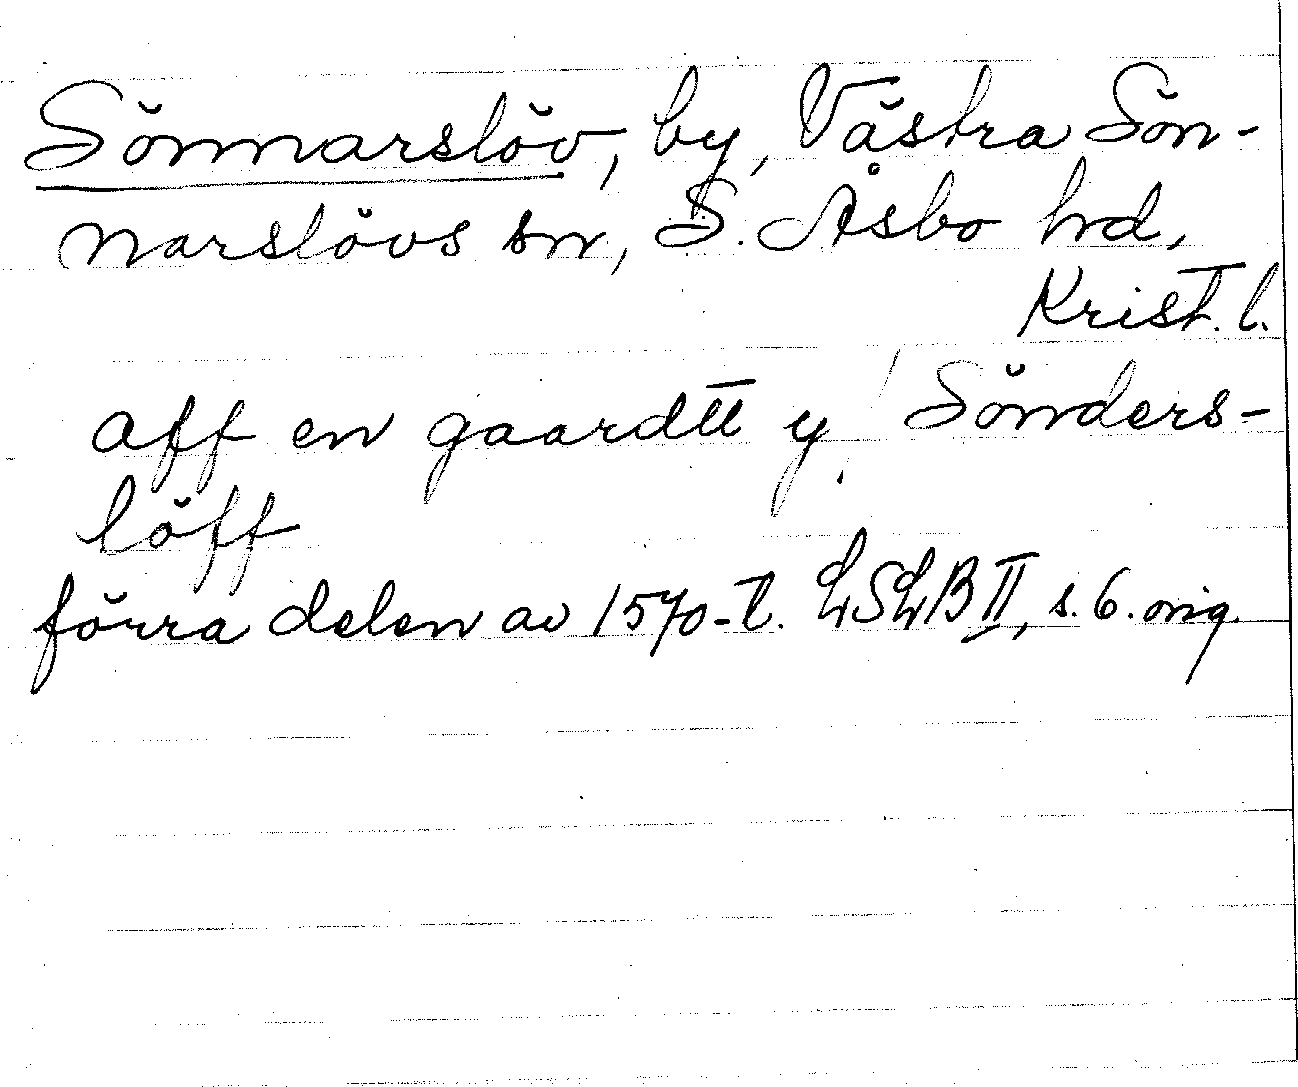 Sönnarslöv, by, Västra Sön-
narslövs sn, S. Åsbo hd,
Krist. l.
aff en gaardtt y Sönders-
löff
förra delen av 1570-t. LSLB II, s. 6. orig.